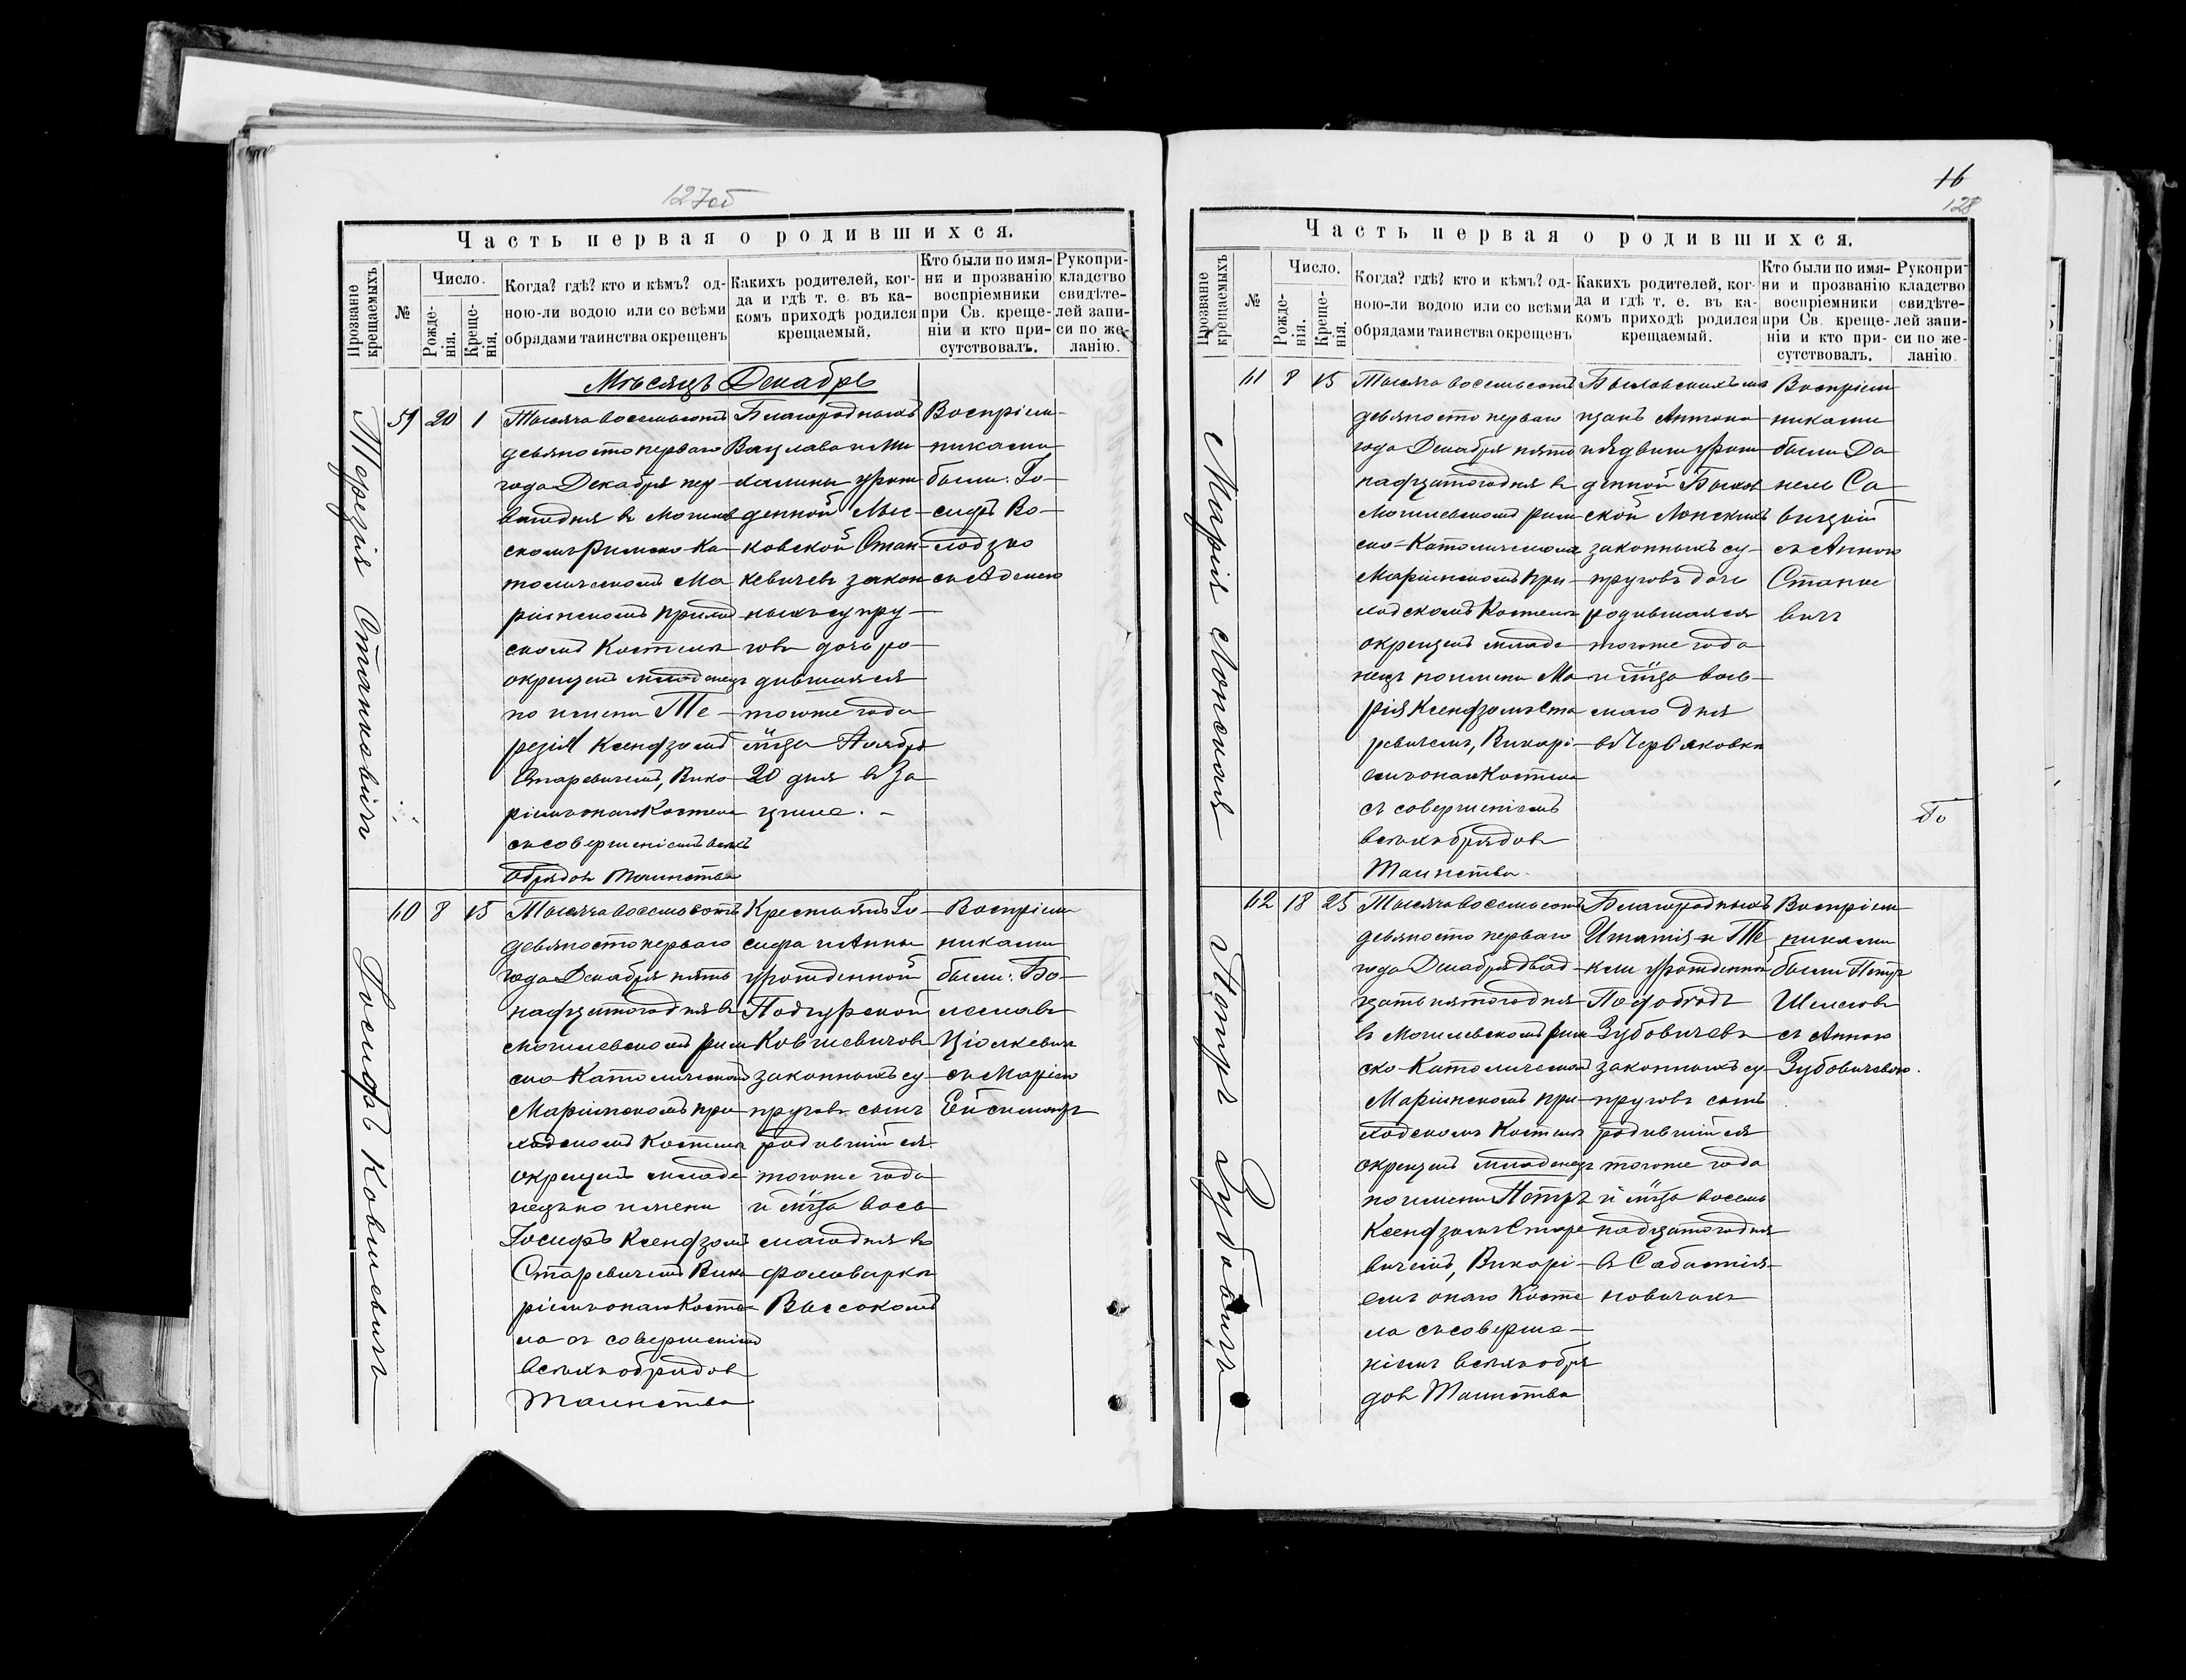 127об
Часть первая о родившихся.
Прозваніе крещаемыхъ
№
Число.
Рожденія.
Крещенія.
Когда? гдѣ? кто и кѣмъ? од-
ною-ли водою или со всѣми
обрядами таинства окрещенъ
Какихъ родителей, ког-
да и гдѣ т. е. въ ка-
комъ приходѣ родился
крещаемый.
Кто были по имя-
ни и прозванію
воспріемники
при Св. креще-
ніи и кто при-
сутствовалъ.
Рукопри-
кладство
свидѣте-
лей запи-
си по же-
ланію.
Мѣсяцъ Декабрь
Терезія Станкевичъ
59 20 1
Тысяча восемьсотъ
девяносто перваго
года Декабря пер-
ваго дня въ Могилев
скомъ Римско Ка-
толическомъ Ма
ріинскомъ приход
скомъ Костелѣ
окрещенъ младенецъ
по имени Те-
резія Ксендзомъ
Старевичемъ, Вика
ріемъ онаго Костела
съ совершеніемъ всѣхъ
обрядовъ Таинства
Благородныхъ
Вацлава и Ми
халины урож
денной Мис-
ковской Стан-
кевичевъ закон
ныхъ супру-
говъ дочь ро-
дившаяся
тогоже года
мѣца Ноября
20 дня въ За
цише.
Воспріем-
никами
были: Іо-
сифъ Во-
лодзко
съ Аделею
Іосифъ Ковшевичъ
60 8 15
Тысяча восемьсотъ
девяносто перваго
года Декабря пять
надцатого дня въ
Могилевскомъ рим
ско Католическомъ
Маріинскомъ при
ходскомъ Костелѣ
окрещенъ младе
нецъ по имени
Іосифъ Ксендзомъ
Старевичемъ Вика
ріемъ онаго Косте-
ла съ совершеніемъ
всѣхъ обрядовъ
Таинства
Крестьянъ Іо-
сифа и Анны
урожденной
Подгурской
Ковшевичовъ
законныхъ су-
пруговъ сынъ
родившійся
тогоже года
и мѣца вось
маго дня въ
фольваркѣ
Высокомъ
Воспріем
никами
были: Бо-
леславъ
Ціолкевичъ
съ Маріею
Ейсимонтъ
16
128
Часть первая о родившихся.
Прозваніе крещаемыхъ
№
Число.
Рожденія.
Крещенія.
Когда? гдѣ? кто и кѣмъ? од-
ною-ли водою или со всѣми
обрядами таинства окрещенъ
Какихъ родителей, ког-
да и гдѣ т. е. въ ка-
комъ приходѣ родился
крещаемый.
Кто были по имя-
ни и прозванію
воспріемники
при Св. креще-
ніи и кто при-
сутствовалъ.
Рукопри-
кладство
свидѣте-
лей запи-
си по же-
ланію.
Марія Лонская
61 8 15
Тысяча восемьсотъ
девяносто перваго
года Декабря пятъ
надцатого дня въ
Могилевскомъ рим
ско=Католическомъ
Маріинскомъ при-
ходскомъ Костелѣ
окрещенъ младе
нецъ по имени Ма
рія Ксендзомъ Ста
ревичемъ, Викарі-
емъ онаго Костела
съ совершеніемъ
всѣхъ обрядовъ
Таинства.
Быховскихъ мѣ
щанъ Антона
и Ядвиги урож
денной Быхов
ской Лонскихъ
законныхъ су-
пруговъ дочь
родившаяся
тогоже года
и мѣца вось-
маго дня
въ Червяковкѣ
Воспріем
никами
были Да
нель Са
вицкій
съ Анною
Станке
вичъ
По
Петръ Зубовичъ
62 18 25
Тысяча восемьсотъ
девяносто перваго
года Декабря двад-
цать пятого дня
въ Могилевскомъ рим
ско-Католическомъ
Маріинскомъ при-
ходскомъ Костелѣ
окрещенъ младенецъ
по имени Петръ
Ксендзомъ Старе
вичемъ, Викарі-
емъ онаго Косте
ла съ соверше-
ніемъ всѣхъ обря
довъ Таинства
Благородныхъ
Игнатія и Те
кли урожденной
Зубовичевъ
законныхъ су-
пруговъ сынъ
родившійся
тогоже года
и мѣца восем
надцатого дня
въ Сабастія-
новичахъ
Воспріем
никами
были Петръ
съ Анною
Зубовичевою.